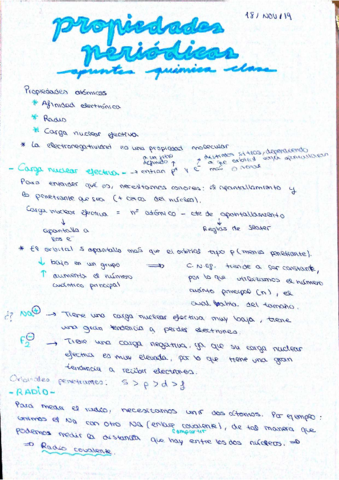 18/NOV/19
propiedades
periódicas
apuntes química clase
Propiedades atómicas
* Afinidad electrónica
* Radio
* Carga nuclear efectiva
* La electronegatividad no una propiedad molecular
- Carga nuclear efectiva - → entran p⁺ y e⁻
Para entender que es, necesitamos conocer: el apantallamiento y
lo penetrante que sea (+ cerca del núcleo).
Carga nuclear efectiva = nº atómico - cte de apantallamiento
apantalla a
los e⁻
Reglas de Slater
* El orbital s apantalla más que el orbital tipo p (menos penetrante).
↓ bajo en un grupo ⇒ C.N.ef. tiende a ser constante,
↑ aumenta el número
cuántico principal
por lo que utilizamos el número
cuántico principal (n), el
cual habla del tamaño.
Na⊕ → Tiene una carga nuclear efectiva muy baja, tiene
una gran tendencia a perder electrones.
F⊖ → Tiene una carga negativa, ya que su carga nuclear
efectiva es muy elevada, por lo que tiene una gran
tendencia a recibir electrones.
Orbitales penetrantes: S > p > d > f
- RADIO -
Para medir el radio, necesitamos unir dos átomos. Por ejemplo:
unimos el Na con otro Na (enlace covalente), de tal manera que
compartir
podemos medir la distancia que hay entre los dos núcleos. ⇒
⇒ Radio covalente.